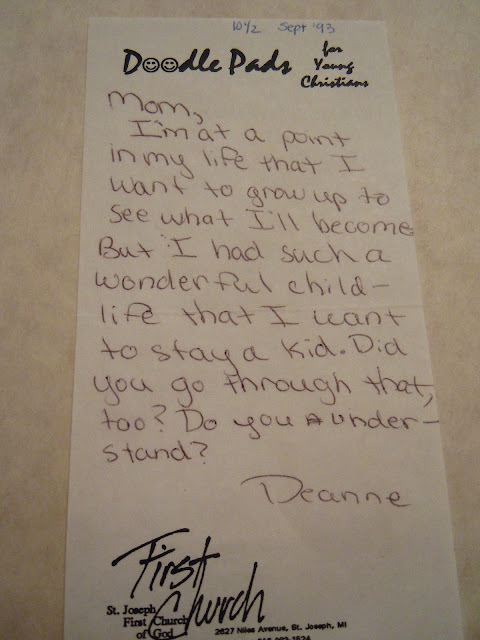 10½ Sept '93
Doodle Pads for Young Christians
Mom,
I'm at a point
in my life that I
want to grow up to
see what I'll become
But I had such a
wonderful child-
life that I want
to stay a kid. Did
you go through that,
too? Do you under-
stand?
Deanne
First Church
St. Joseph
First Church
of God
2627 Niles Avenue, St. Joseph, MI